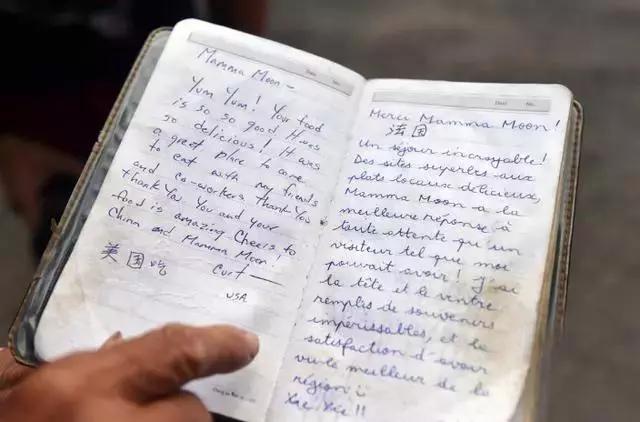 Date: No.
Mamma Moon –
Yum Yum! Your food
is so so good. It was
so delicious! It was
a great place to come
to eat with my friends
and co-workers. Thank You
thank You. You and your
food is amazing. Cheers to
China and Mamma Moon!
美国吃 Curt
USA
Date: No.
Merci Mamma Moon!
法国
Un séjour incroyable!
Des sites superbes aux
plats locaux délicieux,
Mamma Moon a la
meilleure réponse à
toute attente qu'un
visiteur tel que moi
pouvait avoir! J'ai
la tête et le ventre
remplis de souvenirs
impérissables, et la
satisfaction d'avoir
vu le meilleur de la
région :)
Xie Xie!!